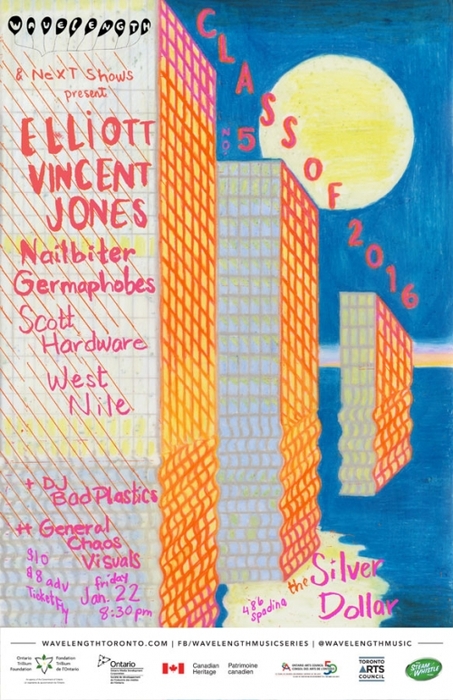 WAVELENGTH
& NeXT Shows
present
ELLIOTT
VINCENT
JONES
Nailbiter
Germaphobes
Scott
Hardware
West
Nile
+ DJ
Bad Plastics
++ General
Chaos
Visuals
$10
$8 adv
Ticketfly
friday
Jan. 22
8:30pm
CLASS OF 2016
NO. 5
the Silver
Dollar
486
spadina
WAVELENGTHTORONTO.COM | FB/WAVELENGTHMUSICSERIES | @WAVELENGTHMUSIC
Ontario Trillium Foundation
Fondation Trillium de l'Ontario
Ontario
Canadian Heritage
Patrimoine canadien
ONTARIO ARTS COUNCIL
CONSEIL DES ARTS DE L'ONTARIO
50
TORONTO
ARTS
COUNCIL
STEAM
WHISTLE